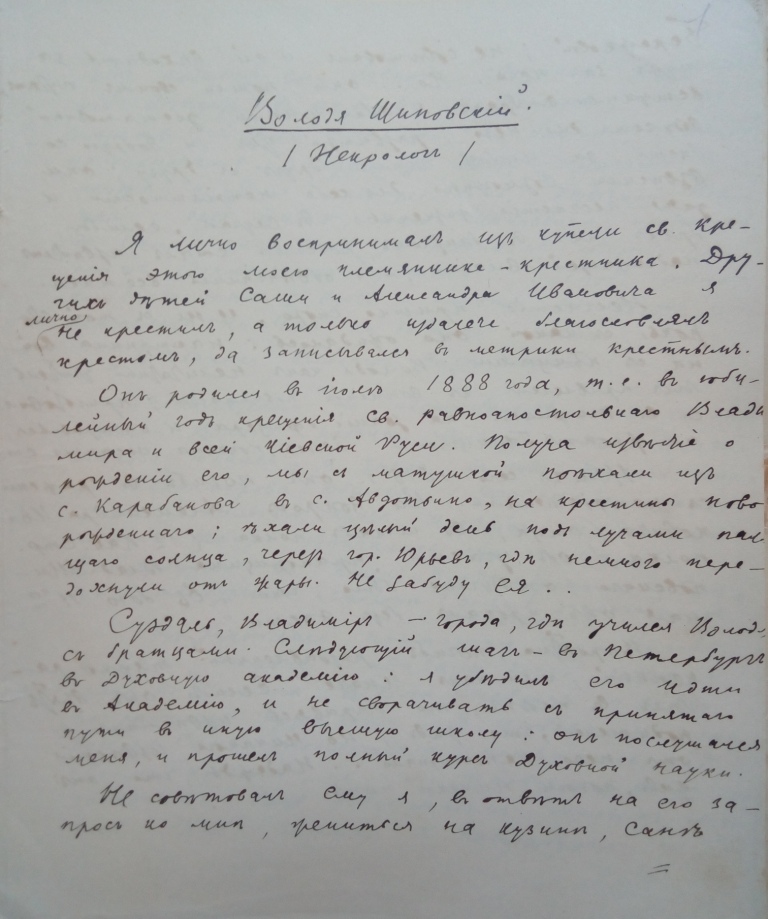 Володя Шиповскій.
/ Некрологъ /
Я лично воспринималъ изъ купели св. кре-
щенія этого моего племянника-крестника. Дру-
гихъ дѣтей Саши и Александра Ивановича я
лично
не крестилъ, а только издалече благословлялъ
крестомъ, да записывался въ метрики крестнымъ.
Онъ родился въ іюлѣ 1888 года, т.е. въ юби-
лейный годъ крещенія св. равноапостольнаго Влади
мира и всей Кіевской Руси. Получа извѣстіе о
рожденіи его, мы съ матушкой поѣхали изъ
с. Карабанова въ с. Авдотьино, на крестины ново
рожденнаго; ѣхали цѣлый день подъ лучами паля
щаго солнца, черезъ гор. Юрьевъ, гдѣ немного пере-
дохнули отъ жары. Не забуду ея . .
Суздаль, Владиміръ – города, гдѣ учился Володя
съ братцами. Слѣдующій шагъ – въ Петербургъ
въ Духовную академію: я убѣдилъ его идти
въ Академію, и не сворачивать съ принятаго
пути въ иную высшую школу: онъ послушался
меня, и прошелъ полный курсъ Духовной науки.
Не совѣтовалъ ему я, въ отвѣтъ на его за-
просъ ко мнѣ, жениться на кузинѣ, Санѣ